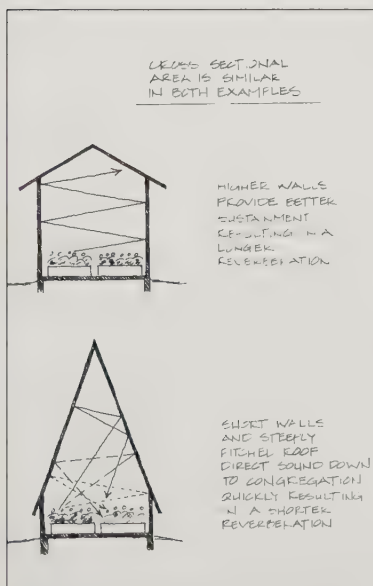 CROSS SECTIONAL
AREA IS SIMILAR
IN BOTH EXAMPLES
HIGHER WALLS
PROVIDE BETTER
SUSTAINMENT
RESULTING IN A
LONGER
REVERBERATION
SHORT WALLS
AND STEEPLY
PITCHED ROOF
DIRECT SOUND DOWN
TO CONGREGATION
QUICKLY RESULTING
IN A SHORTER
REVERBERATION